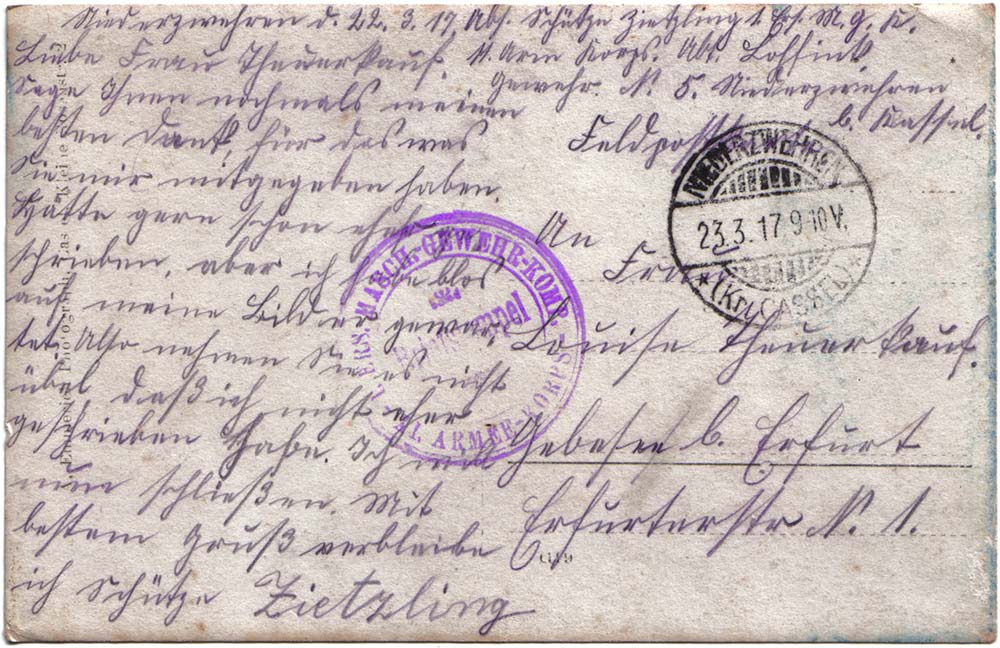 Niederzwehren d. 22. 3. 17. Abs. Schütze Zietzling 1. Ers. M. G. K.
11. Arm Korps. Abt.
Gewehr. N. 5. Niederzwehren
b. Kassel.
Liebe Frau Theuerkauf.
Sage Ihnen nochmals meinen
besten Dank, für das was
Sie mir mitgegeben haben.
Hätte gern schon eher
schrieben, aber ich habe blos
auf meine Bilder gewar-
tet. Also nehmen Sie es nicht
übel, daß ich nicht eher
geschrieben habe. Ich will
nun schließen. Mit
bestem Gruß verbleibe
ich Schütze Zietzling
Feldpost
An
Frau
Louise Theuerkauf.
Gebesee b. Erfurt
Erfurterstr N. 1.
NIEDERZWEHREN
23.3.17.9-10V.
* (Kr. CASSEL) *
ERS. MASCH.-GEWEHR-KOMP.
XI. ARMEE-KORPS
Briefstempel